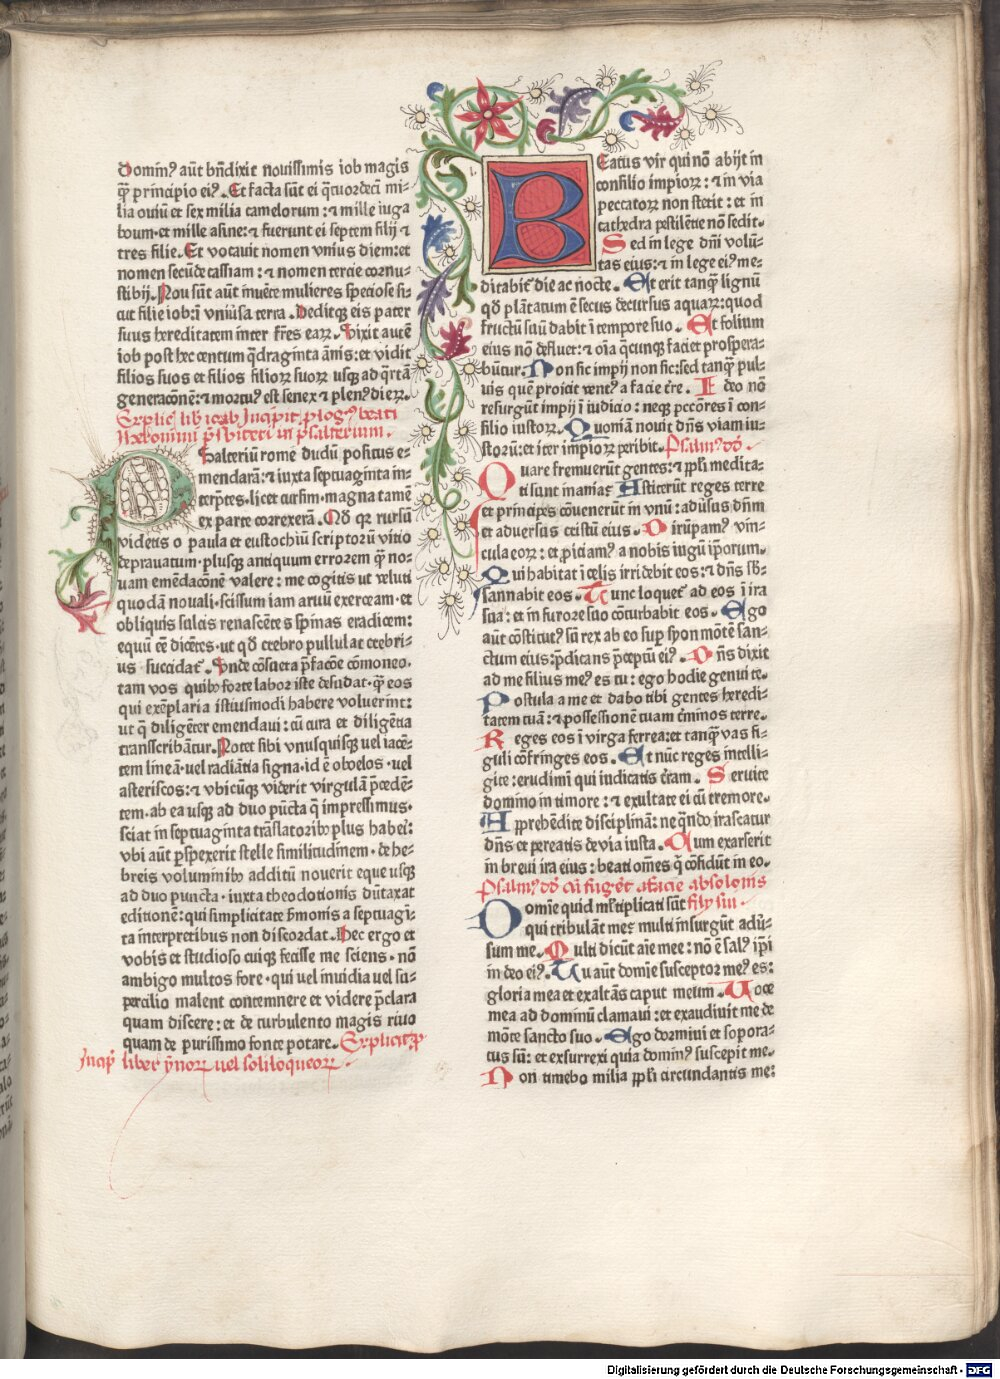 Dominꝰ aūt bn̄dixit nouissimis iob magis
ꝙ̄ principio eiꝰ. Et facta sūt ei q̄tuordecī mi-
lia ouiū et sex milia camelorum: ⁊ mille iuga
boum et mille asine: ⁊ fuerunt ei septem filij ⁊
tres filie. Et vocauit nomen vnius diem: et
nomen secūde cassiam: ⁊ nomen tercie cornu-
stibij. Non sūt aūt inuēte mulieres speciose si-
cut filie iob: ī vniūsa terra. Deditqꝫ eis pater
suus hereditatem inter fr̄es eaꝝ. Vixit autē
iob post hec centum q̄draginta ānis: et vidit
filios suos et filios filioꝝ suoꝝ usqꝫ ad q̄rtā
generacōnē: ⁊ mortuꝰ est senex ⁊ plenꝰ dieꝝ.
Explic̄ lib̄ iob Incipit ꝓlogꝰ beati
Jheronimi p̄sbiteri in psalterium.
Psalteriū rome dudū positus e-
mendarā: ⁊ iuxta septuaginta in-
terp̄tes. licet cursim. magna tamē
ex parte correxerā. Qd̄ qꝛ rursū
videtis o paula et eustochiū scriptorū vitio
deprauatum. plusqꝫ antiquum errorem q̄ no-
uam emēdacōnē valere: me cogitis ut veluti
quodā nouali. scissum iam aruū exerceam. et
obliquis sulcis renascētes spinas eradicem:
equū cē dicētes. ut qd̄ crebro pullulat crebri-
us succidat᷑. Vnde cōsueta p̄facōe cōmoneo.
tam vos quibꝫ forte labor iste desudat. ꝙ̄ eos
qui exēplaria istiusmodi habere voluerint:
ut q̄ diligēter emendaui: cū cura et diligētia
transcribātur. Notet sibi vnusquisqꝫ uel iacē-
tem lineā. uel radiātia signa. id ē obelos. uel
asteriscos: ⁊ vbicūqꝫ viderit virgulā p̄cedē-
tem. ab ea usqꝫ ad duo pūcta q̄ impressimus.
sciat in septuaginta trāslatoribꝫ plus haberi:
vbi aūt ꝑspexerit stelle similitudinem. de he-
breis voluminibꝫ additū nouerit eque usqꝫ
ad duo puncta. iuxta theodotionis dūtaxat
editionē: qui simplicitate s̄monis a septuagī-
ta interpretibus non discordat. Hec ergo et
vobis et studioso cuiqꝫ fecisse me sciens. nō
ambigo multos fore. qui vel inuidia vel su-
percilio malent contemnere et videre p̄clara
quam discere: et de turbulento magis riuo
quam de purissimo fonte potare. Explicit ꝓ
Incip̄ liber ymnoꝝ uel soliloquioꝝ.
Beatus vir qui nō abijt in
consilio impioꝝ: ⁊ in via
peccatoꝝ non stetit: et in
cathedra pestilētie nō sedit.
Sed in lege dn̄i volū-
tas eius: ⁊ in lege eiꝰ me-
ditabit᷑ die ac nocte. Et erit tanqꝫ lignū
qd̄ plātatum ē secus decursus aquaꝝ: quod
fructū suū dabit ī tempore suo. Et folium
eius nō defluet: ⁊ oīa q̄cunqꝫ faciet prospera-
būtur. Non sic impij non sic: sed tanqꝫ pul-
uis quē proicit ventꝰ a facie t̄re. Ideo nō
resurgūt impij ī iudicio: neqꝫ pccōres ī con-
silio iustoꝝ. Quoniā nouit dn̄s viam iu-
storū: et iter impioꝝ peribit. Psalmꝰ dd̄.
Quare fremuerūt gentes: ⁊ ppl̄i medita-
ti sunt inania. Astiterūt reges terre
et principes cōuenerūt in vnū: aduˀsus dn̄m
et aduersus cristū eius. Dirūpamꝰ vin-
cula eoꝝ: et ꝓiciamꝰ a nobis iugū ip̄orum.
Qui habitat ī celis irridebit eos: ⁊ dn̄s sb̄-
sannabit eos. Tunc loquet᷑ ad eos ī ira
sua: et in furore suo cōturbabit eos. Ego
aūt cōstitutꝰ sū rex ab eo suꝑ syon mōtē san-
ctum eius: p̄dicans p̄ceptū eiꝰ. Dn̄s dixit
ad me filius meꝰ es tu: ego hodie genui te.
Postula a me et dabo tibi gentes heredi-
tatem tuā: ⁊ possessionē tuam t̄minos terre.
Reges eos ī virga ferrea: et tanqꝫ vas fi-
guli cōfringes eos. Et nūc reges intelli-
gite: erudimī qui iudicatis t̄ram. Seruite
domino in timore: ⁊ exultate ei cū tremore.
Apprehēdite disciplinā: ne q̄ndo irascatur
dn̄s et pereatis de via iusta. Cum exarserit
in breui ira eius: beati om̄es q̄ cōfidūt in eo.
Psalmꝰ dd̄ cū fuger̄t a facie absolonis
filij sui.
Domine quid ml̄tiplicati sūt
qui tribulāt me: multi insurgūt aduˀ-
sum me. Multi dicūt aīe mee: nō ē salꝰ ip̄i
in deo eiꝰ. Tu aūt domīe susceptor meꝰ es:
gloria mea et exaltās caput meum. Voce
mea ad dominū clamaui: et exaudiuit me de
mōte sancto suo. Ego dormini et sopora-
tus sū: et exsurrexi quia dominꝰ suscepit me.
Non timebo milia ppl̄i circundantis me:
Digitalisierung gefördert durch die Deutsche Forschungsgemeinschaft - DFG